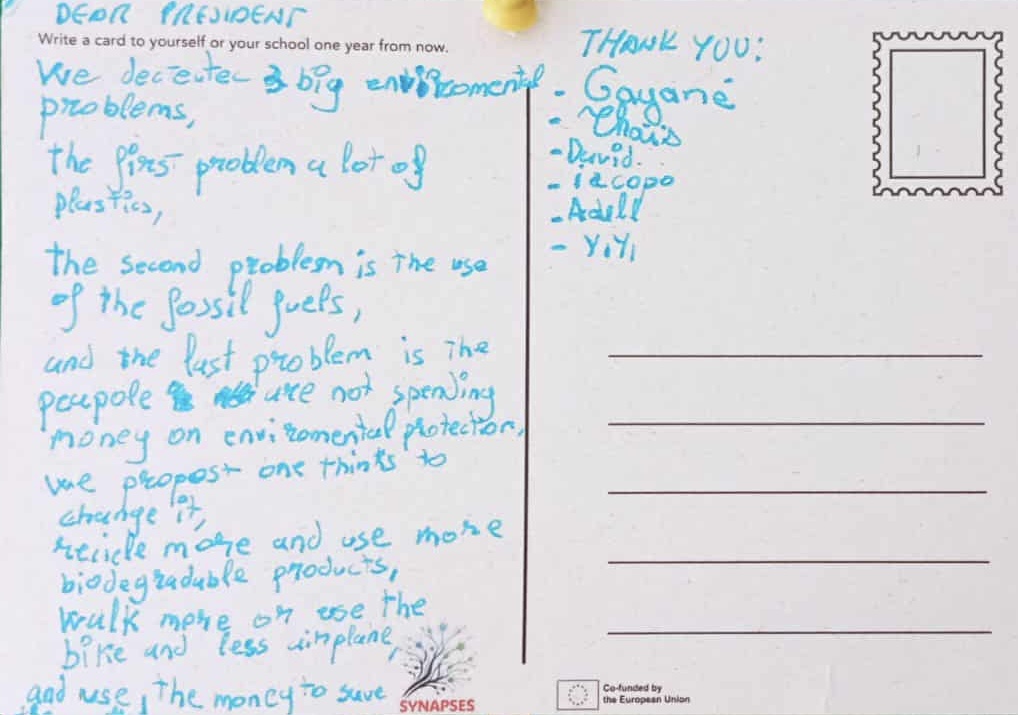 DEAR PRESIDENT
Write a card to yourself or your school one year from now.
We decteter 3 big enviromental
problems,
the first problem a lot of
plastics,
the second problem is the use
of the fossil fuels,
and the last problem is the
peapole are not spending
money on enviromental protection,
we propost one thinks to
change it,
recicle more and use more
biodegradable products,
walk more or use the
bike and less airplane,
and use, the money to save
SYNAPSES
THANK YOU:
- Gayané
- Thais
- David.
- iacopo
- Adell
- YiYi
Co-funded by
the European Union